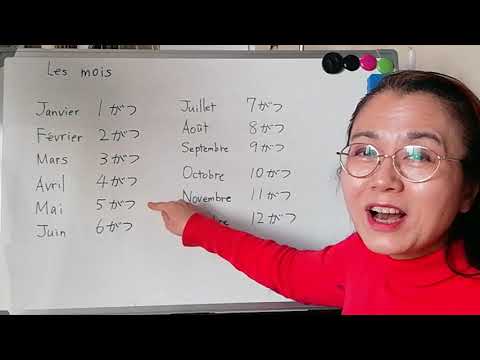 Les mois
Janvier 1がつ
Février 2がつ
Mars 3がつ
Avril 4がつ
Mai 5がつ
Juin 6がつ
Juillet 7がつ
Août 8がつ
Septembre 9がつ
Octobre 10がつ
Novembre 11がつ
12がつ